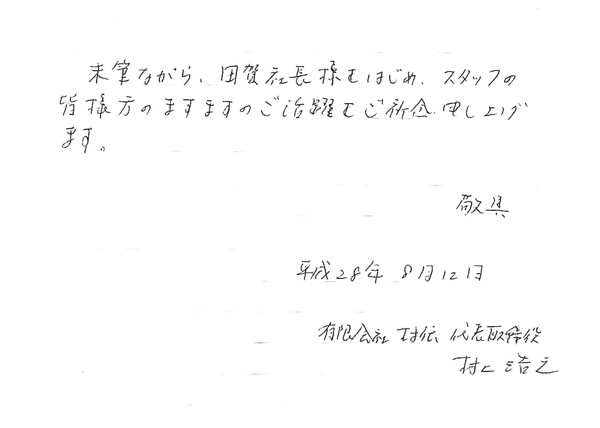 末筆ながら、田賀社長様をはじめ、スタッフの
皆様方のますますのご活躍をご祈念申し上げ
ます。
敬具
平成28年 8月12日
有限会社 村伝 代表取締役
村上浩之